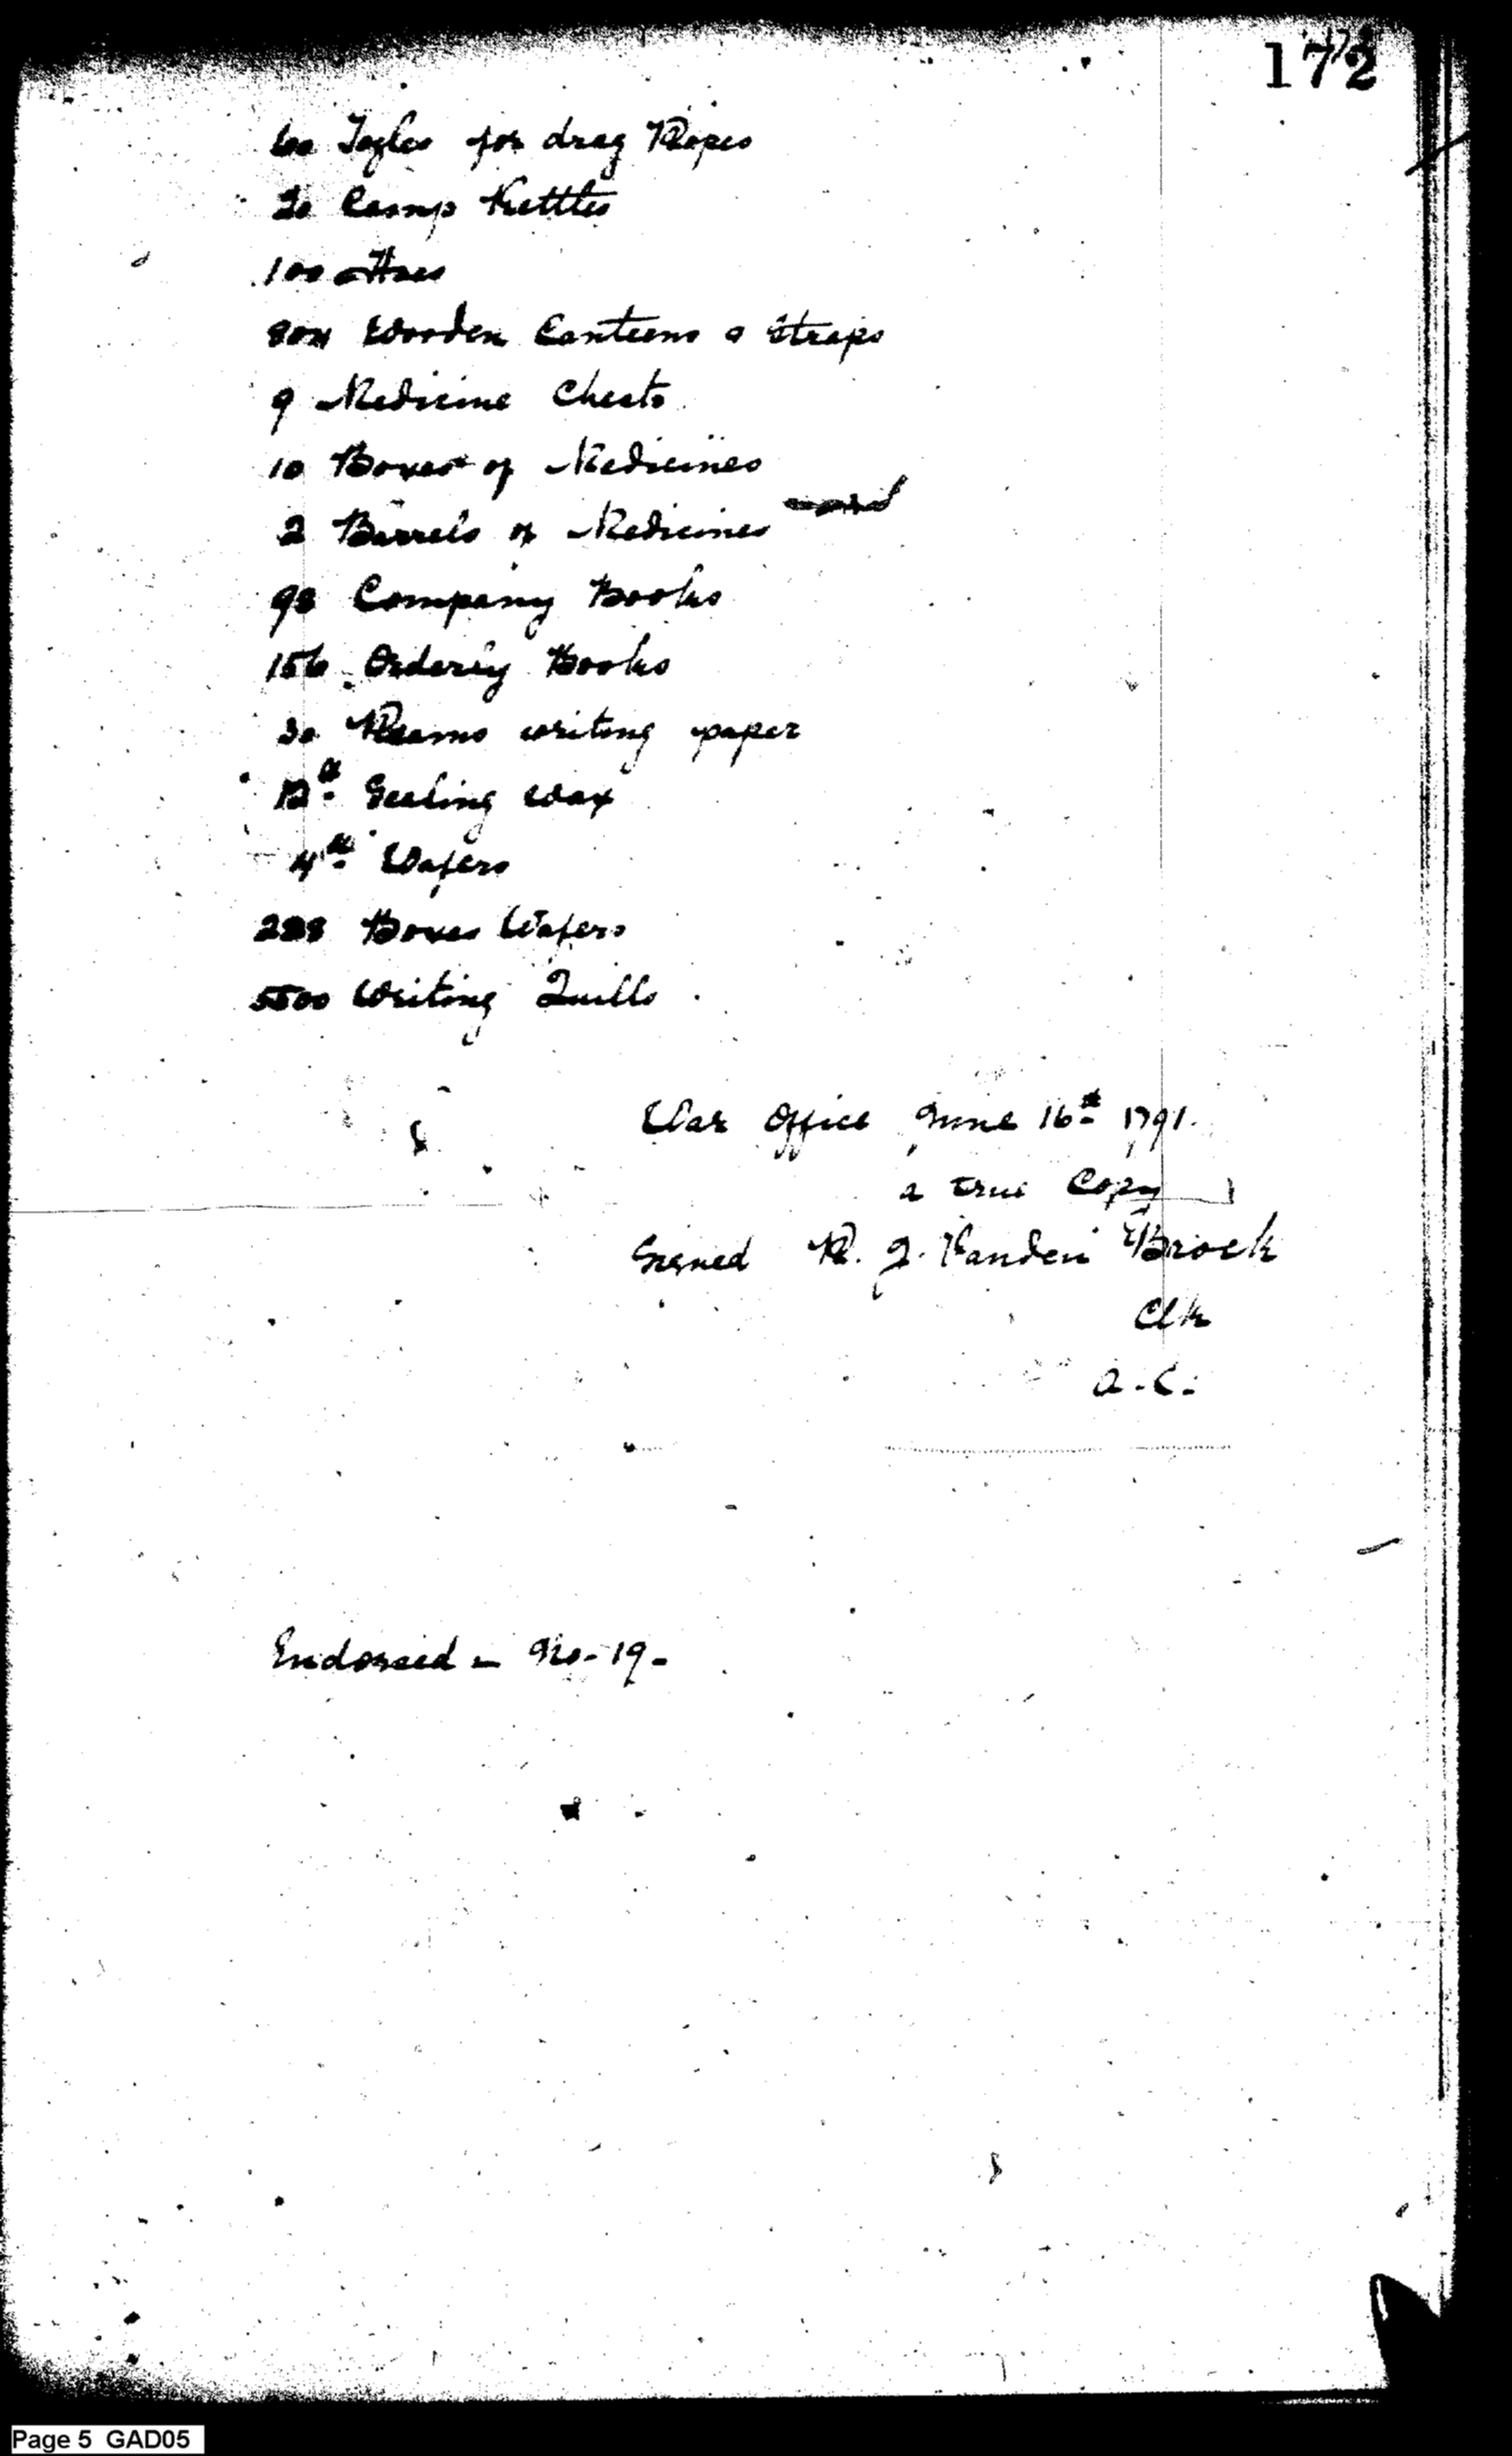 172
60 Togles for drag Ropes
20 Camp Kettles
100 Axes
804 Wooden Canteens & Straps
9 Medicine Chests
10 Boxes of Medicines
2 Barrels of Medicines
98 Company Books
156 Orderly Books
30 Reams writing paper
12 lb Sealing Wax
4 lb Wafers
288 Boxes Wafers
5500 Writing Quills
War Office June 16th 1791.
a true Copy
Signed R. J. Vanden Brock
Clk
A.C.
Endorsed - No-19-
Page 5 GAD05